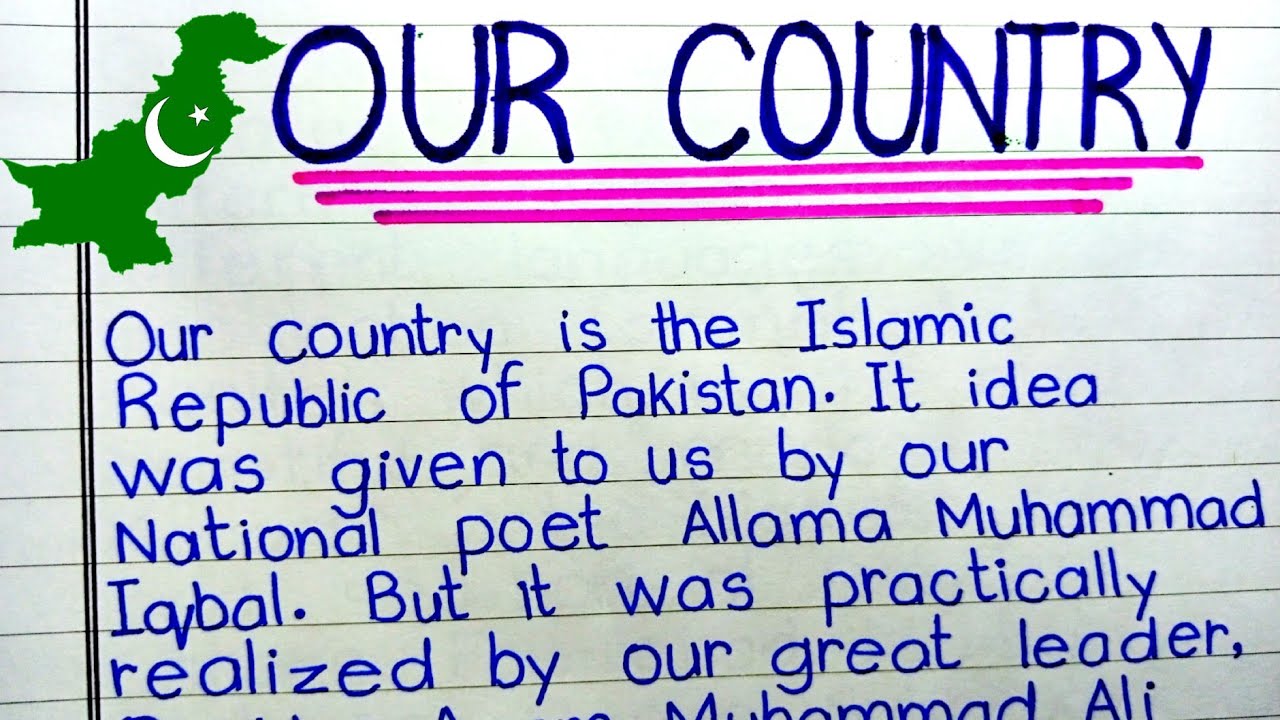 OUR COUNTRY
Our country is the Islamic
Republic of Pakistan. It idea
was given to us by our
National poet Allama Muhammad
Iqbal. But it was practically
realized by our great leader,
Muhammad Ali